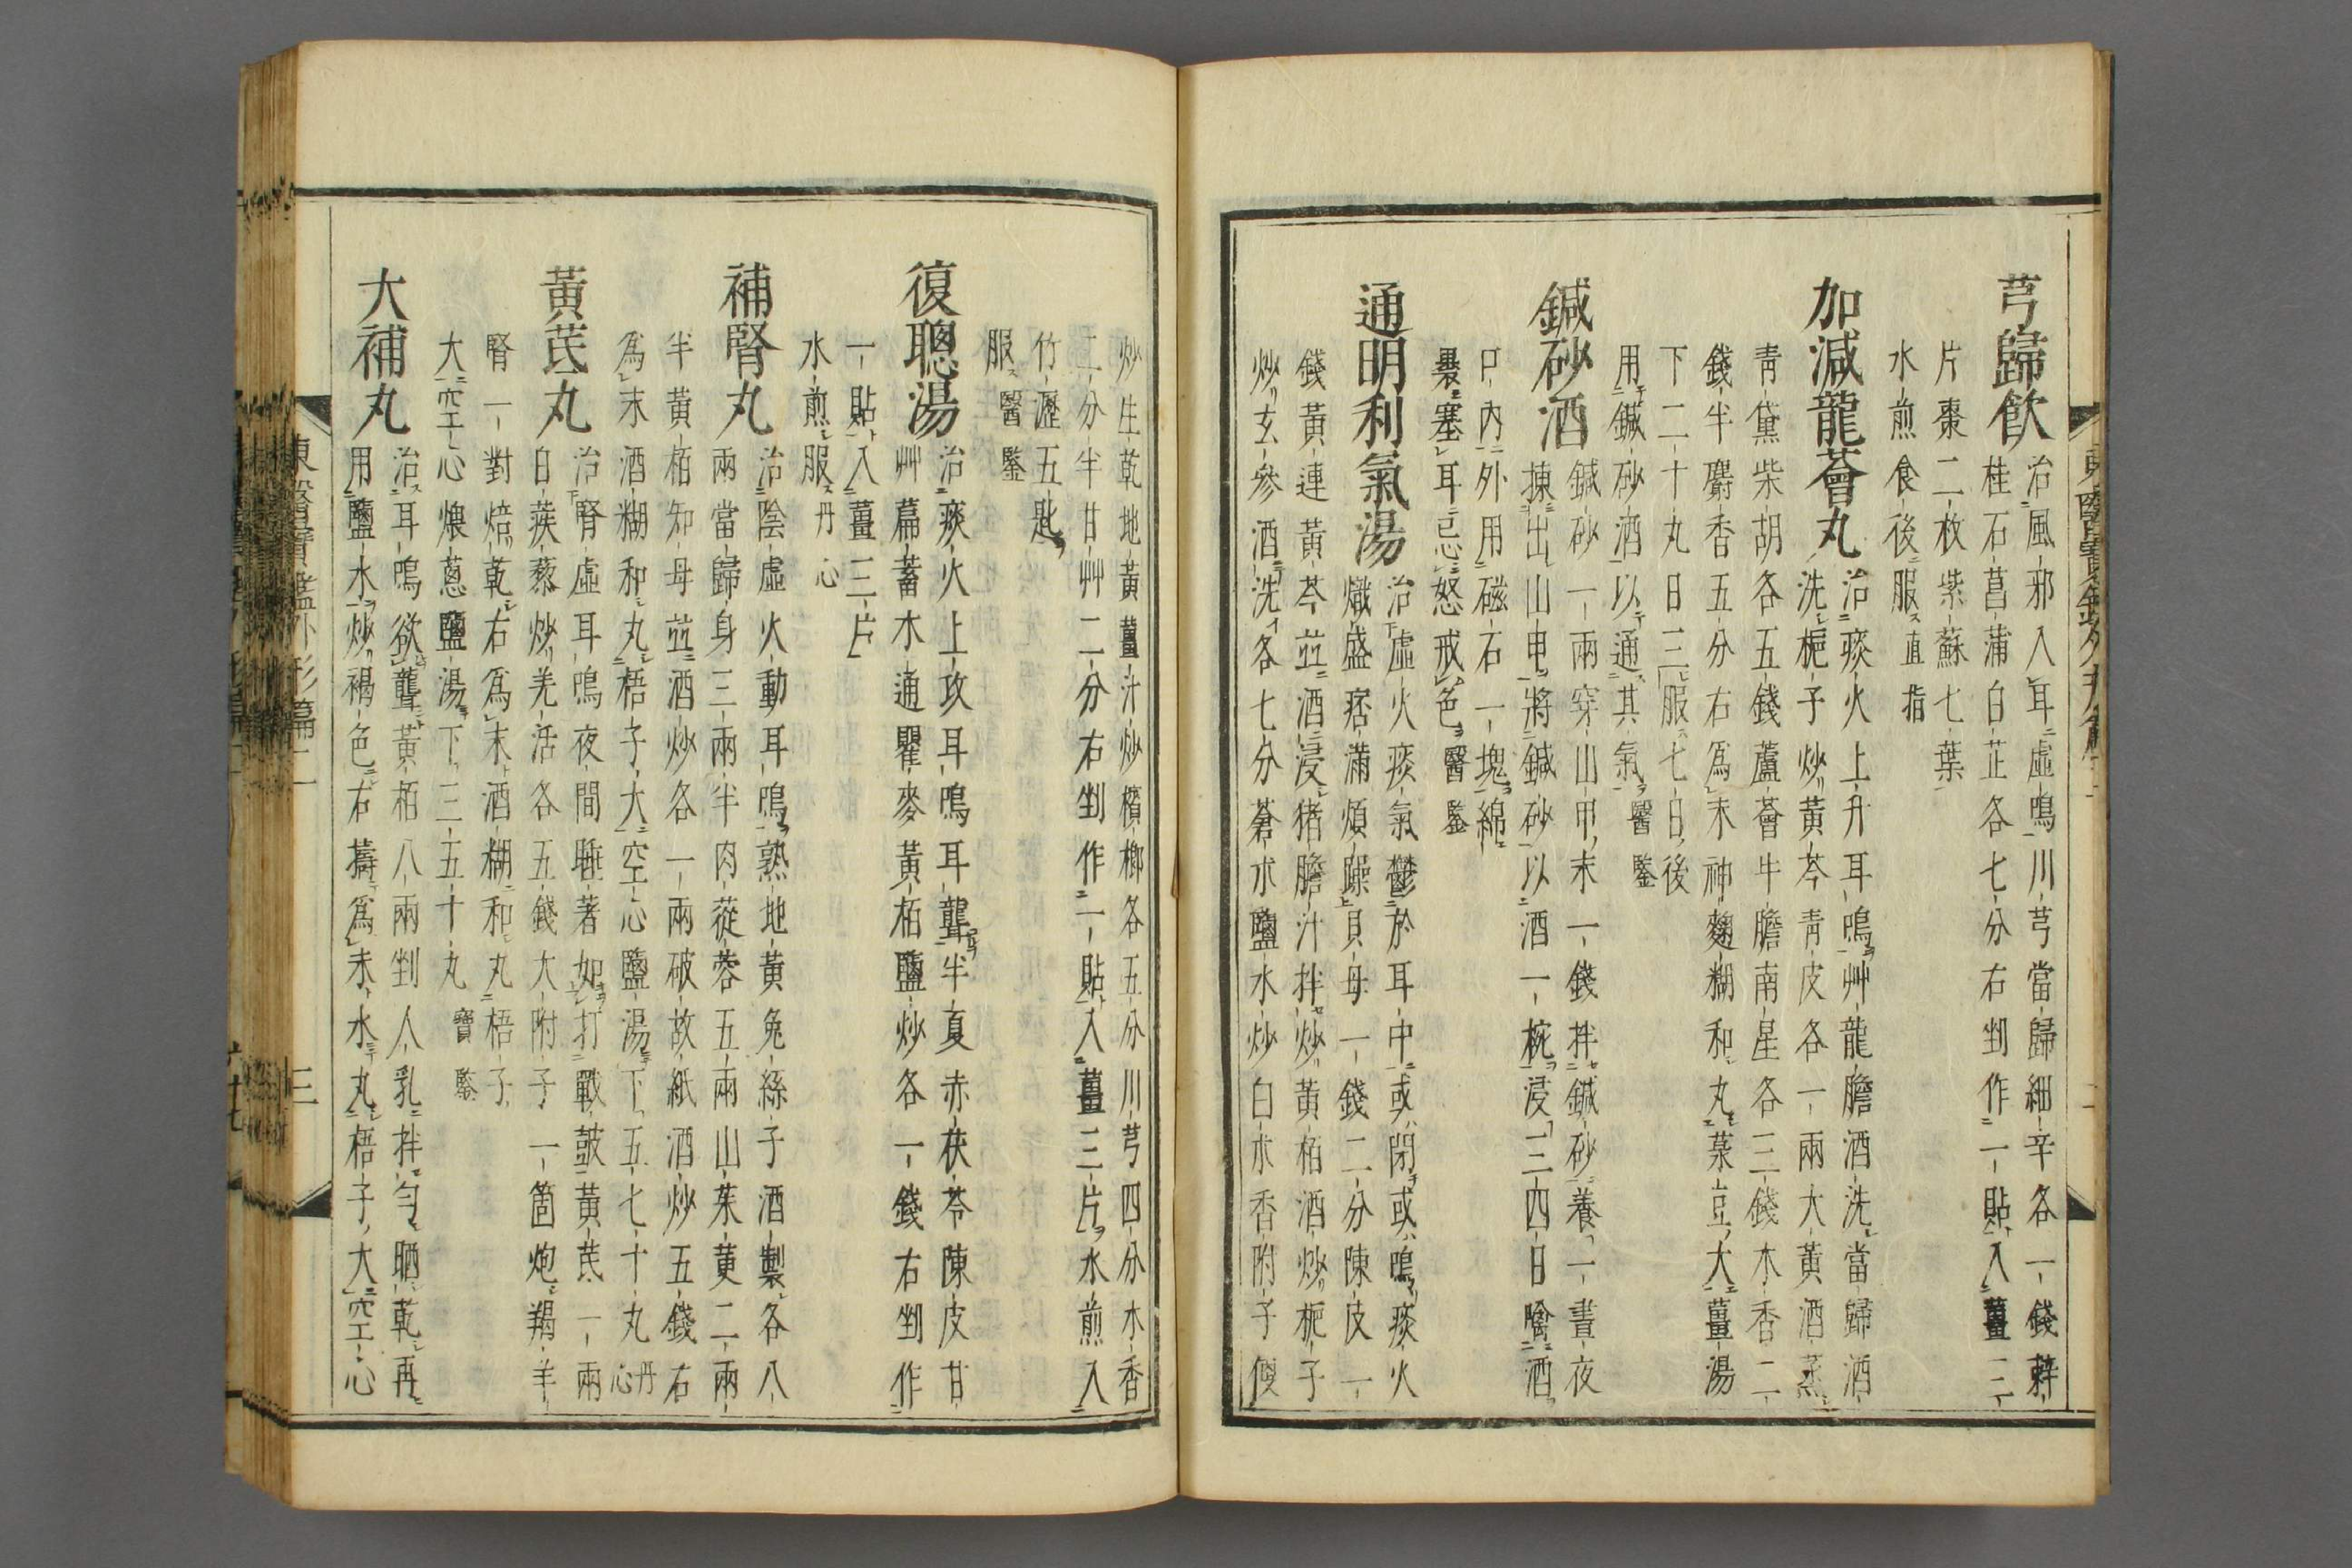 芎歸飲
治風邪入耳虛鳴川芎當歸細辛各一錢
桂石菖蒲白芷各七分右剉作一貼入薑三
片棗二枚紫蘇七葉
水煎食後服直指
加減龍薈丸
治痰火上升耳鳴艸龍膽酒洗當歸酒
洗梔子炒黃芩靑皮各一兩大黃酒蒸
靑黛柴胡各五錢蘆薈牛膽南星各三錢木香二
錢半麝香五分右爲末神麴糊和丸菉豆大薑湯
下二十丸日三服七日後
用鍼砂酒以通其氣醫鑒
鍼砂酒
鍼砂一兩穿山甲末一錢拌鍼砂養一晝夜
揀出山甲將鍼砂以酒一椀浸三四日噙酒
口內外用磁石一塊綿
裹塞耳忌怒戒色醫鑒
通明利氣湯
治虛火痰氣鬱於耳中或閉或鳴痰火
熾盛痞滿煩躁貝母一錢二分陳皮一
錢黃連黃芩並酒浸猪膽汁拌炒黃栢酒炒梔子
炒玄參酒洗各七分蒼朮鹽水炒白朮香附子便
炒生乾地黃薑汁炒檳榔各五分川芎四分木香
二分半甘艸二分右剉作一貼入薑三片水煎入
竹瀝五匙
服醫鑒
復聰湯
治痰火上攻耳鳴耳聾半夏赤茯苓陳皮甘
艸萹蓄木通瞿麥黃栢鹽炒各一錢右剉作
一貼入薑三片
水煎服丹心
補腎丸
治陰虛火動耳鳴熟地黃兔絲子酒製各八
兩當歸身三兩半肉蓯蓉五兩山茱萸二兩
半黃栢知母並酒炒各一兩破故紙酒炒五錢右
爲末酒糊和丸梧子大空心鹽湯下五七十丸丹心
黃芪丸
治腎虛耳鳴夜間睡著如打戰鼓黃芪一兩
白蒺藜炒羌活各五錢大附子一箇炮羯羊
腎一對焙乾右爲末酒糊和丸梧子
大空心煨蔥鹽湯下三五十丸寶鑒
大補丸
治耳鳴欲聾黃栢八兩剉人乳拌勻晒乾再
用鹽水炒褐色右擣爲末水丸梧子大空心
東醫寶鑑外形篇二
三